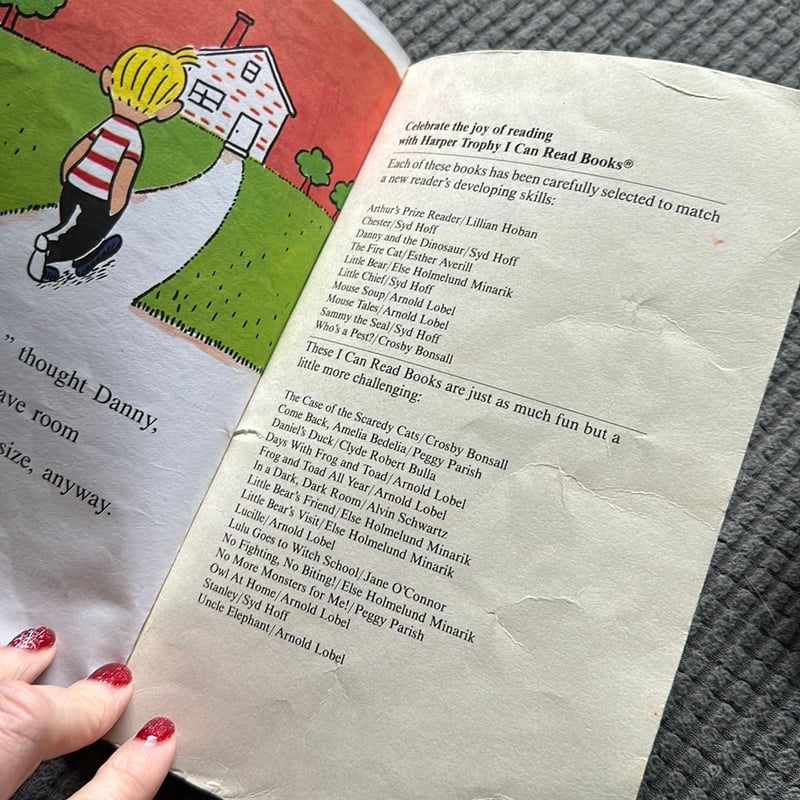 ” thought Danny,
ave room
size, anyway.
Celebrate the joy of reading
with Harper Trophy I Can Read Books®
Each of these books has been carefully selected to match
a new reader's developing skills:
Arthur's Prize Reader/Lillian Hoban
Chester/Syd Hoff
Danny and the Dinosaur/Syd Hoff
The Fire Cat/Esther Averill
Little Bear/Else Holmelund Minarik
Little Chief/Syd Hoff
Mouse Soup/Arnold Lobel
Mouse Tales/Arnold Lobel
Sammy the Seal/Syd Hoff
Who's a Pest?/Crosby Bonsall
These I Can Read Books are just as much fun but a
little more challenging:
The Case of the Scaredy Cats/Crosby Bonsall
Come Back, Amelia Bedelia/Peggy Parish
Daniel's Duck/Clyde Robert Bulla
Days With Frog and Toad/Arnold Lobel
Frog and Toad All Year/Arnold Lobel
In a Dark, Dark Room/Alvin Schwartz
Little Bear's Friend/Else Holmelund Minarik
Little Bear's Visit/Else Holmelund Minarik
Lucille/Arnold Lobel
Lulu Goes to Witch School/Jane O'Connor
No Fighting, No Biting!/Else Holmelund Minarik
No More Monsters for Me!/Peggy Parish
Owl At Home/Arnold Lobel
Stanley/Syd Hoff
Uncle Elephant/Arnold Lobel